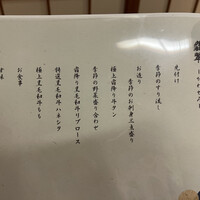 先付け
季節のすり流し
お造り
季節のお刺身三点盛り
極上霜降り牛タン
季節の野菜盛り合わせ
霜降り黒毛和牛リブロース
特選黒毛和牛ハネシタ
極上黒毛和牛もも
お食事